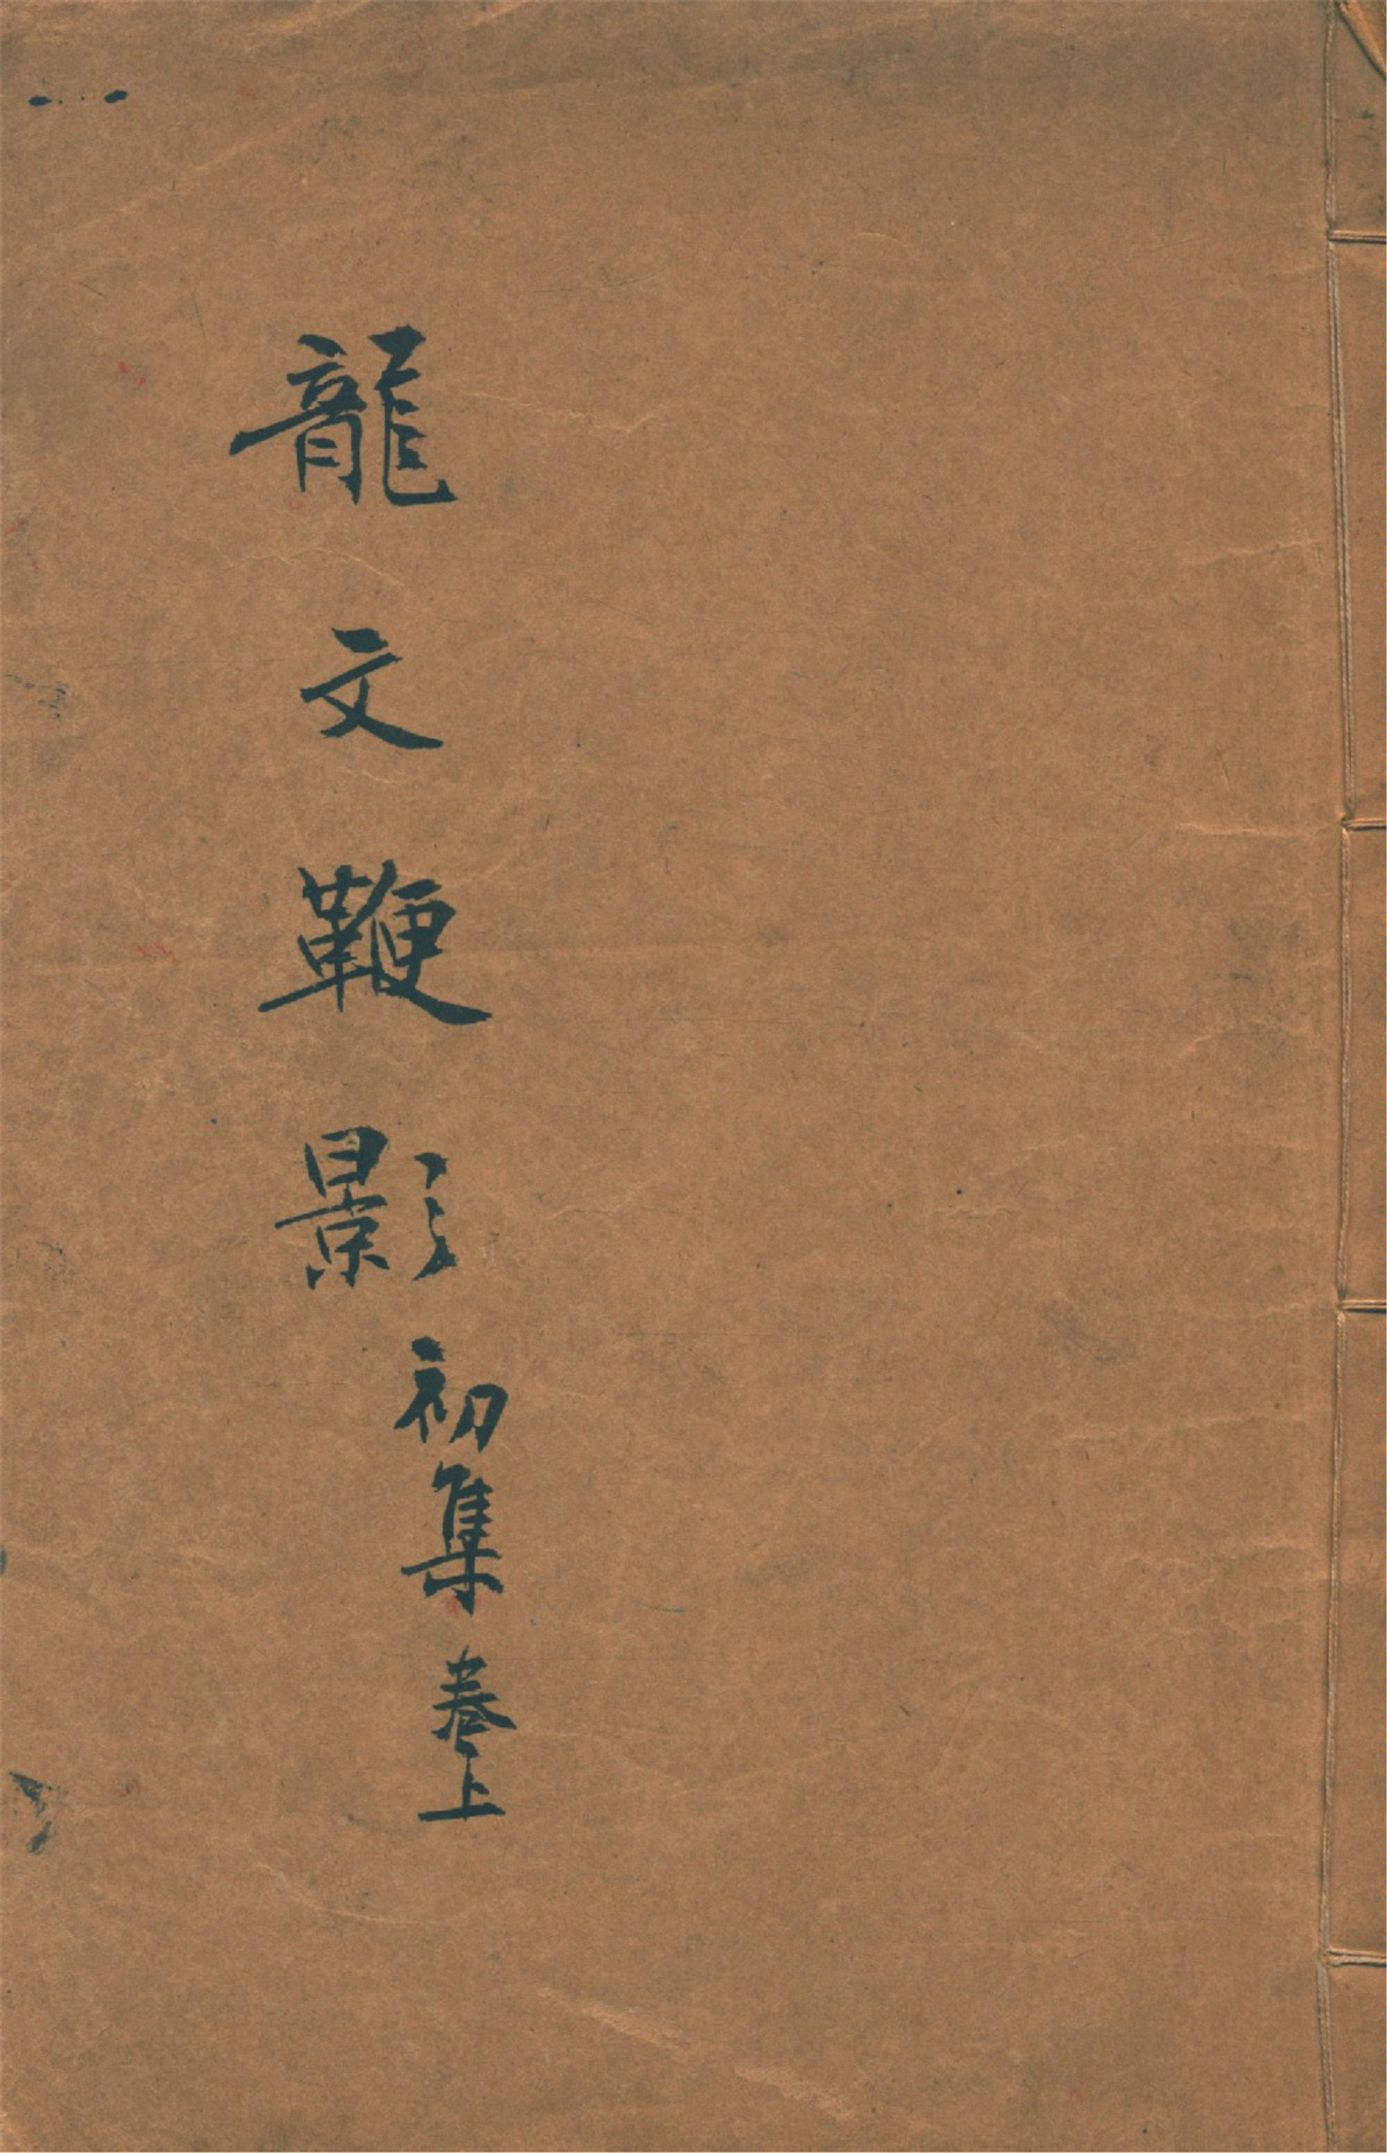 龍文鞭影初集卷上